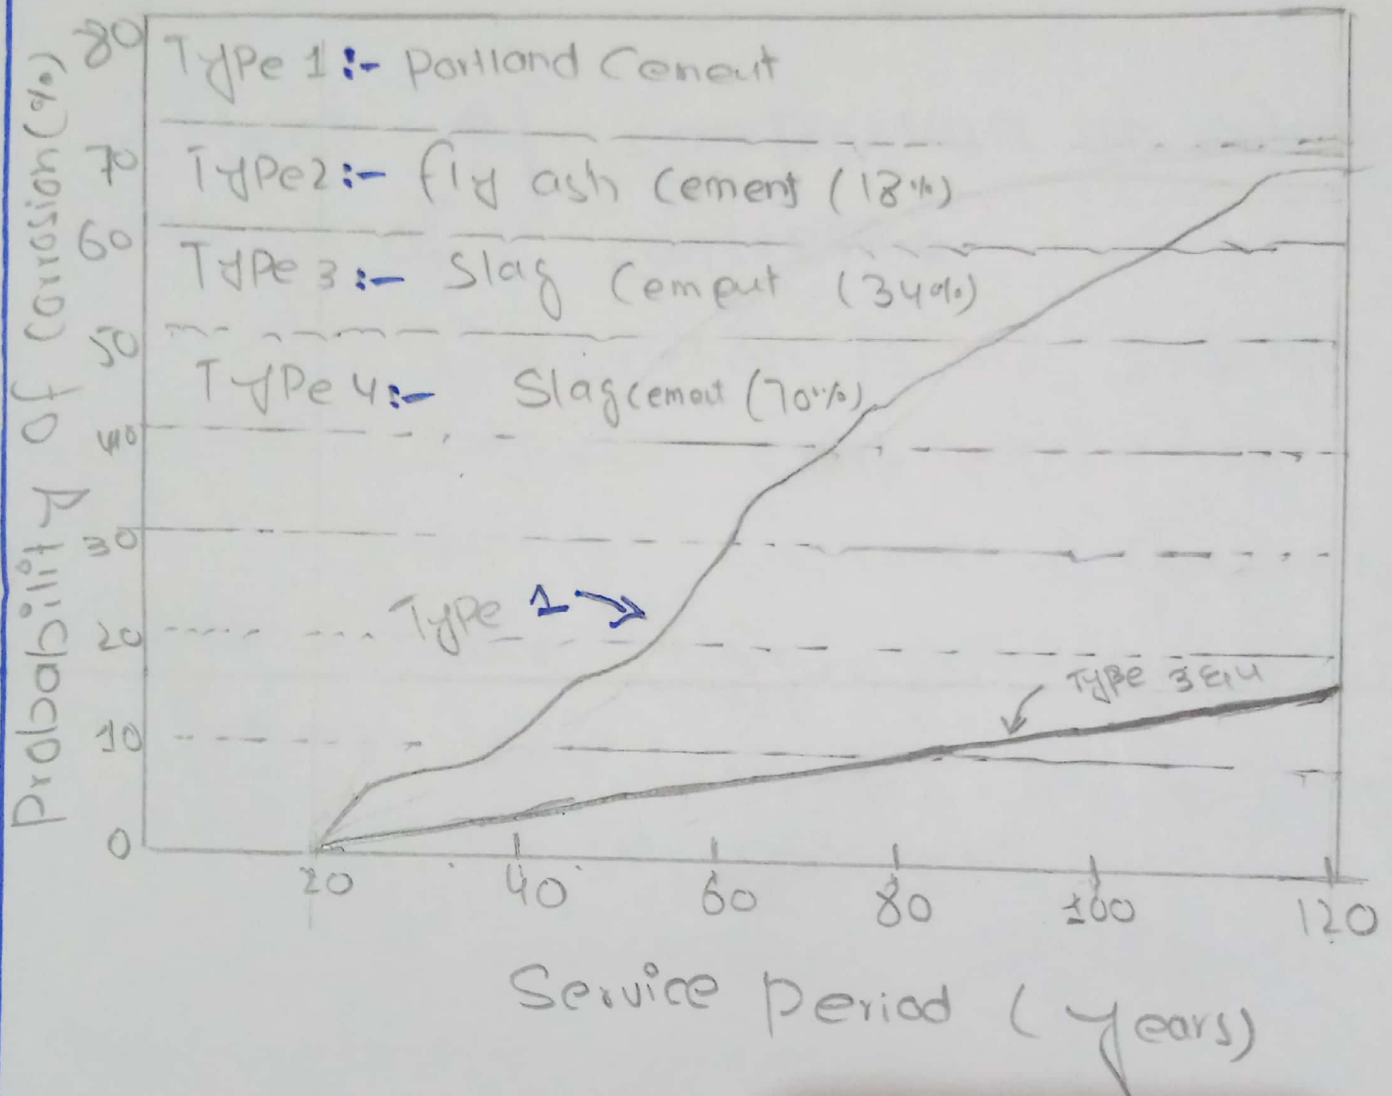 Probability of corrosion (%)
80
70
60
50
40
30
20
10
0
Type 1 :- Portland Cement
Type 2 :- fly ash Cement (18%)
Type 3 :- Slag Cement (34%)
Type 4 :- Slag cement (70%)
Type 1
Type 3 & 4
20 40 60 80 100 120
Service Period (years)